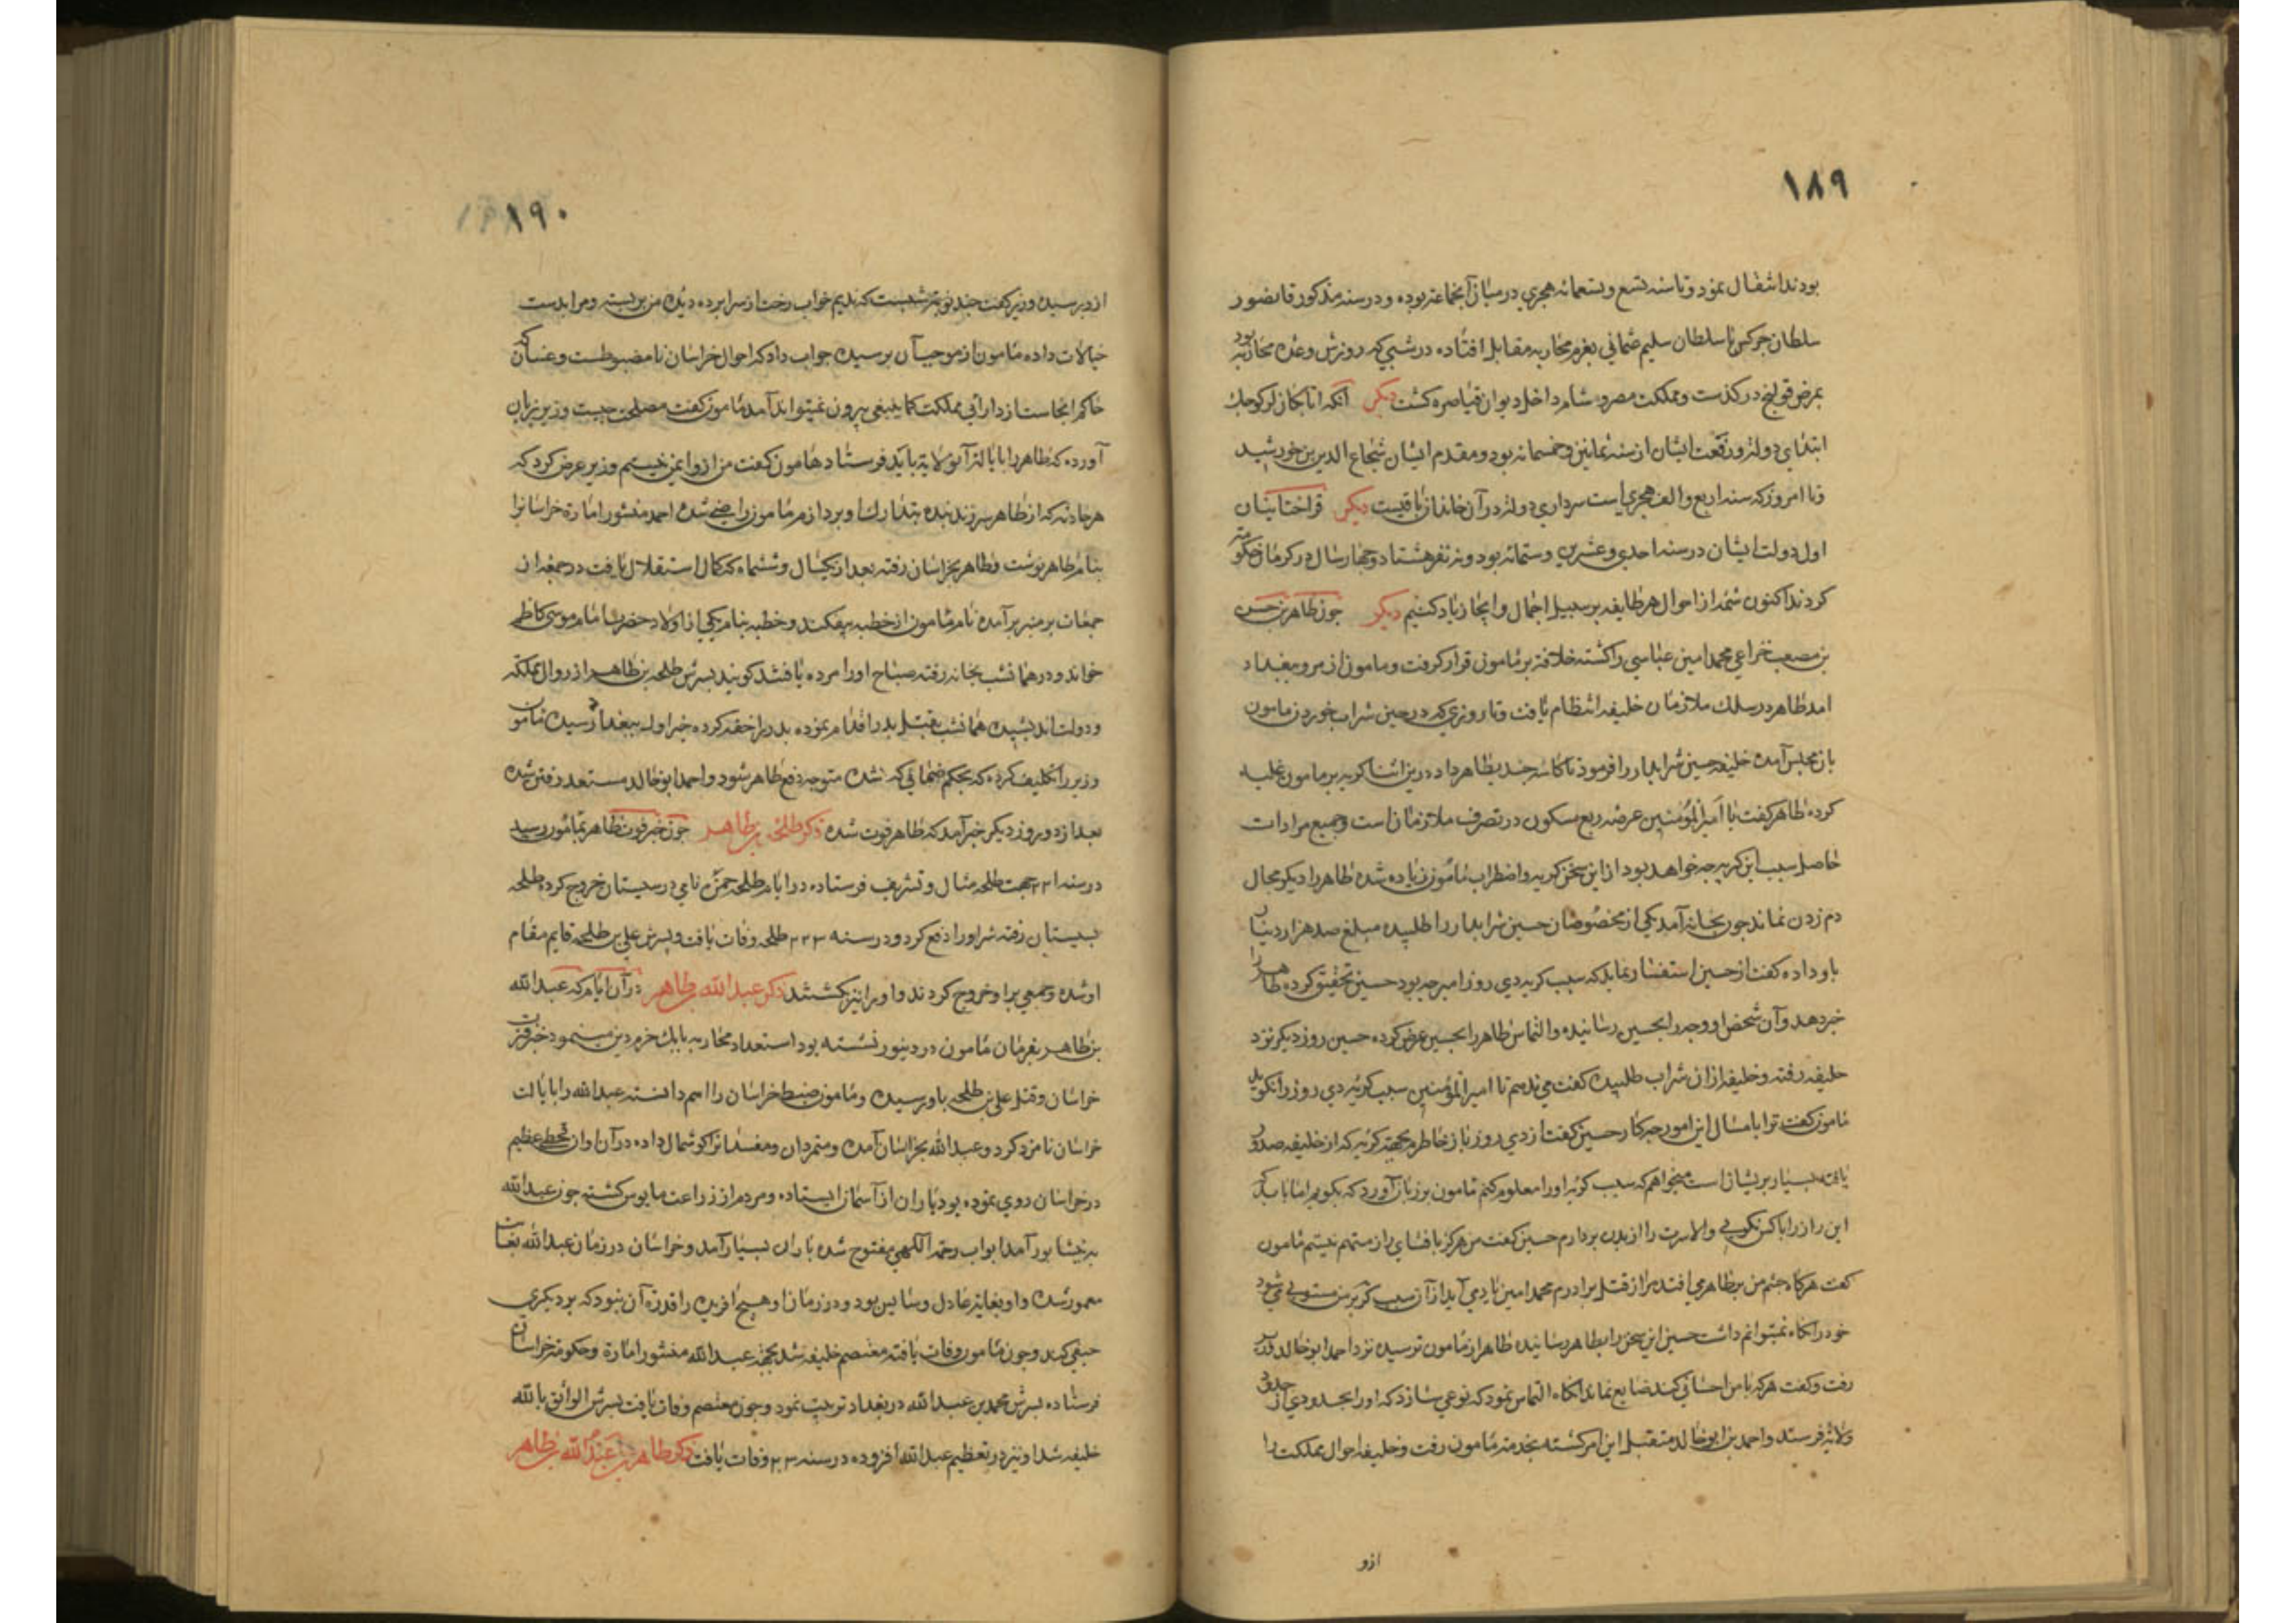 ۱۸۹
بودند اشتغال نمود و تا سنه تسع و تسعمائه هجري در ميان آنجماعة بوده و در سنه مذكور قانصور
سلطان جركس با سلطان سليم عثماني بعزم محاربه مقابل افتاده در شبي كه روزش وعده محاربه بود
بمرض قولنج در كذشت و مملكت مصر و شام داخل ديوان قياصره كشت ديكر آنكه اتابكان لر كوجك
ابتداي دولة و رفعت ايشان از سنه ثمانين و خمسمائه بود و مقدم ايشان شجاع الدين بن خورشيد
و تا امروز كه سنه اربع و الف هجري است سرداري و دولة در آن خاندان باقيست ديكر قراختائيان
اول دولت ايشان در سنه احدي و عشرين و ستمائه بود و نه نفر هشتاد و جهار سال در كرمان حكومة
كردند اكنون شمه از احوال هر طايفه بر سبيل اجمال و ايجاز ياد كنيم ديكر جون طاهر بن حسن
بن مصعب خزاعي محمد امين عباسي را كشته خلافة بر مامون قرار كرفت و مامون از مرو ببغداد
امد طاهر در سلك ملازمان خليفه انتظام يافت و تا روزي كه در حين شراب خوردن مامون
باز مجلس آمده خليفه حسين شرابدار را فرمود تا كاسه جند بطاهر داد در ين اثنا كريه بر مامون غلبه
كرده طاهر كفت يا أمير المؤمنين عرصه ربع مسكون در تصرف ملازمان است و جميع مرادات
حاصل سبب اين كريه جه خواهد بود از اين سخن كريه و اضطراب مامون زياده شده طاهر را ديكر مجال
دم زدن نماند جون بخانه آمد يكي از مخصوصان حسين شرابدار را طلبيده مبلغ صد هزار دينار
باو داده كفت از حسين استفسار نمايد كه سبب كريه دي روز امير جه بود حسين تحقيق كرده طاهر را
خبر دهد و آن شخص او وجه را بحسين رسانيده و التماس طاهر را بحسين عرض كرده حسين روز ديكر نزد
خليفه رفته و خليفه از ان شراب طلبيده كفت مي ندهم تا امير المؤمنين سبب كريه دي روز را نكويد
مامون كفت ترا با مثال اين امور جه كار حسين كفت از دي روز باز خاطرم بجهة كريه كه از خليفه صدور
يافته بسيار پريشان است ميخواهم كه سبب كريه او را معلوم كنم مامون بر زبان آورد كه بكويم اما بايد كه
اين راز را با كس نكويي والا سرت را از بدن بردارم حسين كفت من هركز بافشاي راز متهم نيستم مامون
كفت هركاه جشم من بر طاهر مي افتد مرا از قتل برادرم محمد امين ياد مي آيد از آن سبب كريه بر من مستولي مي شود
خود را نكاه نميتوانم داشت حسين اين سخن را بطاهر رسانيده طاهر از مامون ترسيده نزد احمد ابو خالد وزير
رفت و كفت هر كه با من احساني كند ضايع نماند انكاه التماس نمود كه نوعي سازد كه او را بحدودي از حدود
ولاية فرستد و احمد بن ابو خالد متقبل اين امر كشته بخدمة مامون رفت و خليفه احوال مملكت را
ازو
۱۹۰
ازو پرسيده وزير كفت جند نوبة شبست كه نديم خواب رخت از سرا برده ديده من بر بسته و مرا بدست
خيالات داده مامون از موجب آن پرسيده جواب داد كه احوال خراسان نا مضبوطست و غسان كه
حاكم انجاست از دارائي مملكت كما ينبغي بيرون نميتواند آمد مامون كفت مصلحت جيست وزير بزبان
آورده كه طاهر را با يالة آن ولاية بايد فرستاد مامون كفت من از و ايمن نيستم وزير عرض كرد كه
هر حادثه كه از طاهر سر زند بنده بتدارك او پردازم مامون راضي شده احمد منشور امارة خراسان را
بنام طاهر نوشت و طاهر بخراسان رفته بعد از يكسال و شش ماه كه كمال استقلال يافت در جمعه از
جمعات بر منبر بر آمده نام مامون از خطبه بيفكند و خطبه بنام يكي از اولاد حضرة امام موسي كاظم
خواند و در همان شب بخانه رفته صباح او را مرده يافتند كويند پسرش طلحه بن طاهر از زوال مملكة
و دولت انديشيده همانشب بقتل پدر اقدام نموده پدر را خفه كرده خبر اوله ببغداد رسيده مامون
وزير را تكليف كرده كه بحكم ضماني كه شده متوجه دفع طاهر شود و احمد ابو خالد مستعد رفتن شده
بعد از دو روز ديكر خبر آمد كه طاهر فوت شده ذكر طلحة بن طاهر جون خبر فوت طاهر بمامون رسيد
در سنه جهت طلحه مثال و تشريف فرستاده در ايام طلحه حمزه نامي در سيستان خروج كرده طلحه
بسيستان رفته شر او را دفع كرد و در سنه ۲۲۳ طلحه وفات يافت و پسرش علي بن طلحه قايم مقام
او شده و جمعي بر او خروج كردند و او را نيز بكشتند ذكر عبد الله بن طاهر در آن ايام كه عبد الله
بن طاهر بفرمان مامون در دينور نشسته بود استعداد محاربه بابك خرم دين مينمود خبر فترت
خراسان و قتل علي بن طلحه باو رسيده و مامون ضبط خراسان را اهم دانسته عبد الله را بايالت
خراسان نامزد كرد و عبد الله بخراسان آمده و متمردان و مفسدان را كوشمال داده در آن اوان قحطي عظيم
در خراسان روي نموده بود باران از آسمان ايستاده و مردم از زراعت مايوس كشته جون عبد الله
به نيشابور آمد ابواب رحمة الهي مفتوح شده باران بسيار آمد و خراسان در زمان عبد الله بغايت
معمور شده و او بغاية عادل و سايس بود و در زمان او هيچ افريده را قدرة آن نبود كه بر ديكري
حيفي كند و جون مامون وفات يافته معتصم خليفه شد بجهة عبد الله منشور امارة و حكومة خراسان
فرستاده پسرش محمد بن عبد الله در بغداد تربيت نمود و جون معتصم وفات يافت پسرش الواثق بالله
خليفه شد او نيز در تعظيم عبد الله افزوده در سنه وفات يافت ذكر طاهر بن عبد الله بن طاهر